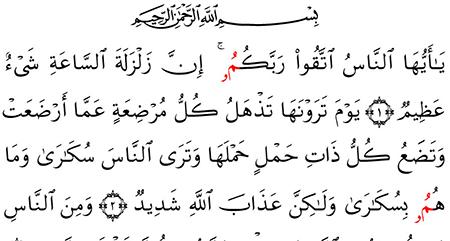 بِسْمِ اللَّهِ الرَّحْمَٰنِ الرَّحِيمِ
يَـٰٓأَيُّهَا ٱلنَّاسُ ٱتَّقُوا۟ رَبَّكُمُۥ ۚ إِنَّ زَلْزَلَةَ ٱلسَّاعَةِ شَىْءٌ
عَظِيمٌ ﴿١﴾ يَوْمَ تَرَوْنَهَا تَذْهَلُ كُلُّ مُرْضِعَةٍ عَمَّآ أَرْضَعَتْ
وَتَضَعُ كُلُّ ذَاتِ حَمْلٍ حَمْلَهَا وَتَرَى ٱلنَّاسَ سُكَـٰرَىٰ وَمَا
هُمُۥ بِسُكَـٰرَىٰ وَلَـٰكِنَّ عَذَابَ ٱللَّهِ شَدِيدٌ ﴿٢﴾ وَمِنَ ٱلنَّاسِ